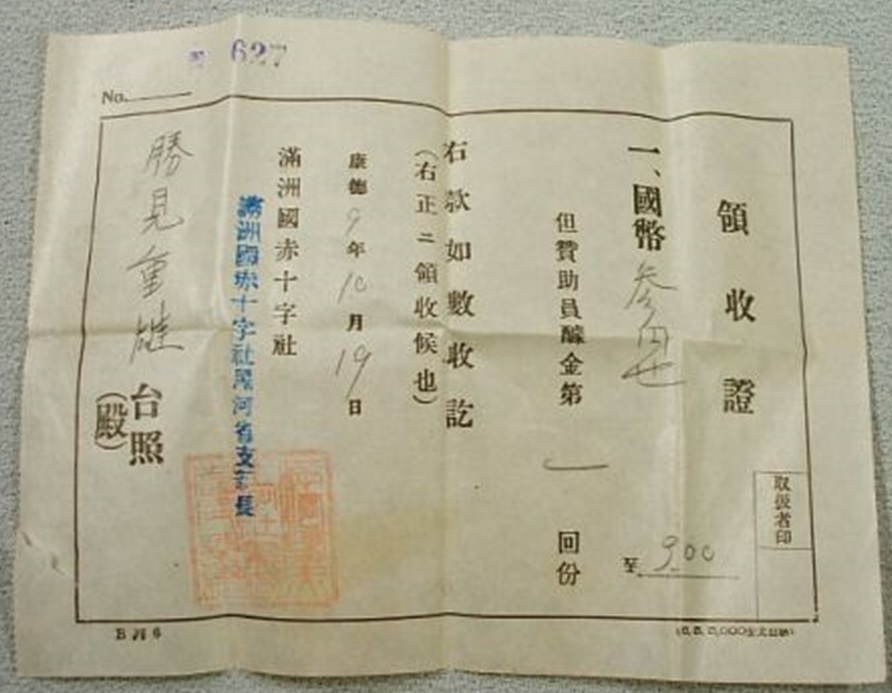 No.
627
領收證
取扱者印
一、國幣參円也
至 9.00
但贊助員醵金第一回份
右款如數收訖
(右正ニ領收候也)
康德9年10月19日
滿洲國赤十字社
滿洲國赤十字社黑河省支部長
勝見重雄 台照
(殿)
B 列 6